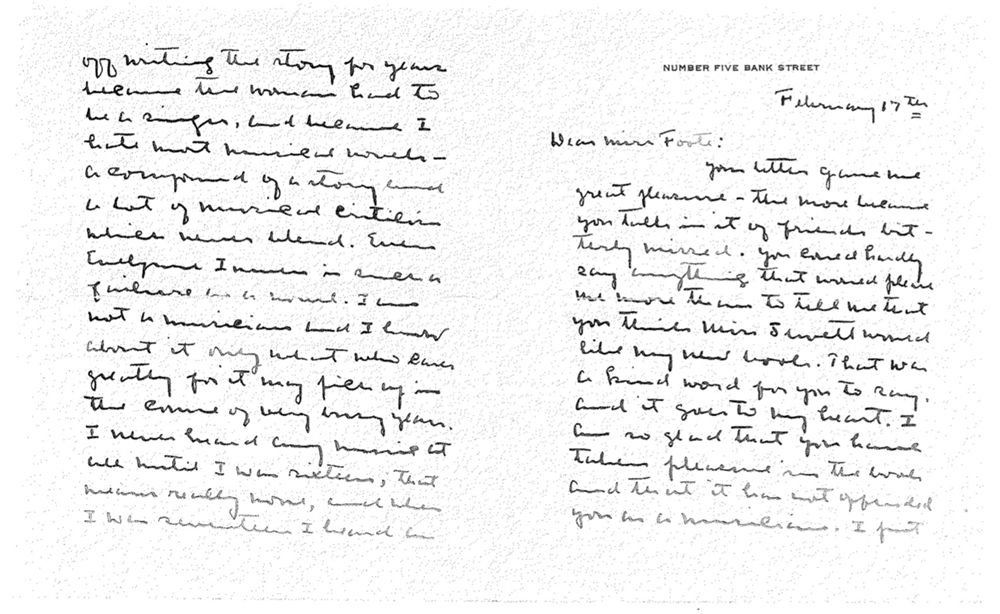 NUMBER FIVE BANK STREET
February 17th
Dear Miss Foote:
Your letter gave me
great pleasure – the more because
you talk in it of friends bit-
terly missed. You could hardly
say anything that would please
me more than to tell me that
you think Miss Jewett would
like my new book. That was
a kind word for you to say,
and it goes to my heart. I
am so glad that you have
taken pleasure in the book
and that it has not offended
you as a musician. I put
off writing the story for years
because the woman had to
be a singer, and because I
hate most musical novels –
a compound of a story and
a lot of musical criticism
which never blend. Even
Evelyn Innes is such a
failure as a novel. I am
not a musician and I know
about it only what who cares
greatly for it may pick up in
the course of very busy years.
I never heard any music at
all until I was sixteen; that
means really none, and when
I was seventeen I heard an